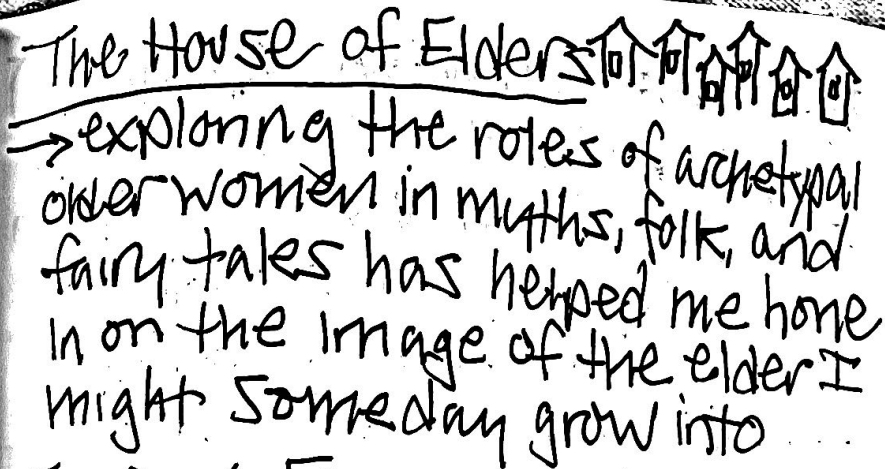 The House of Elders
→exploring the roles of archetypal
older women in myths, folk, and
fairy tales has helped me hone
in on the image of the elder I
might someday grow into....